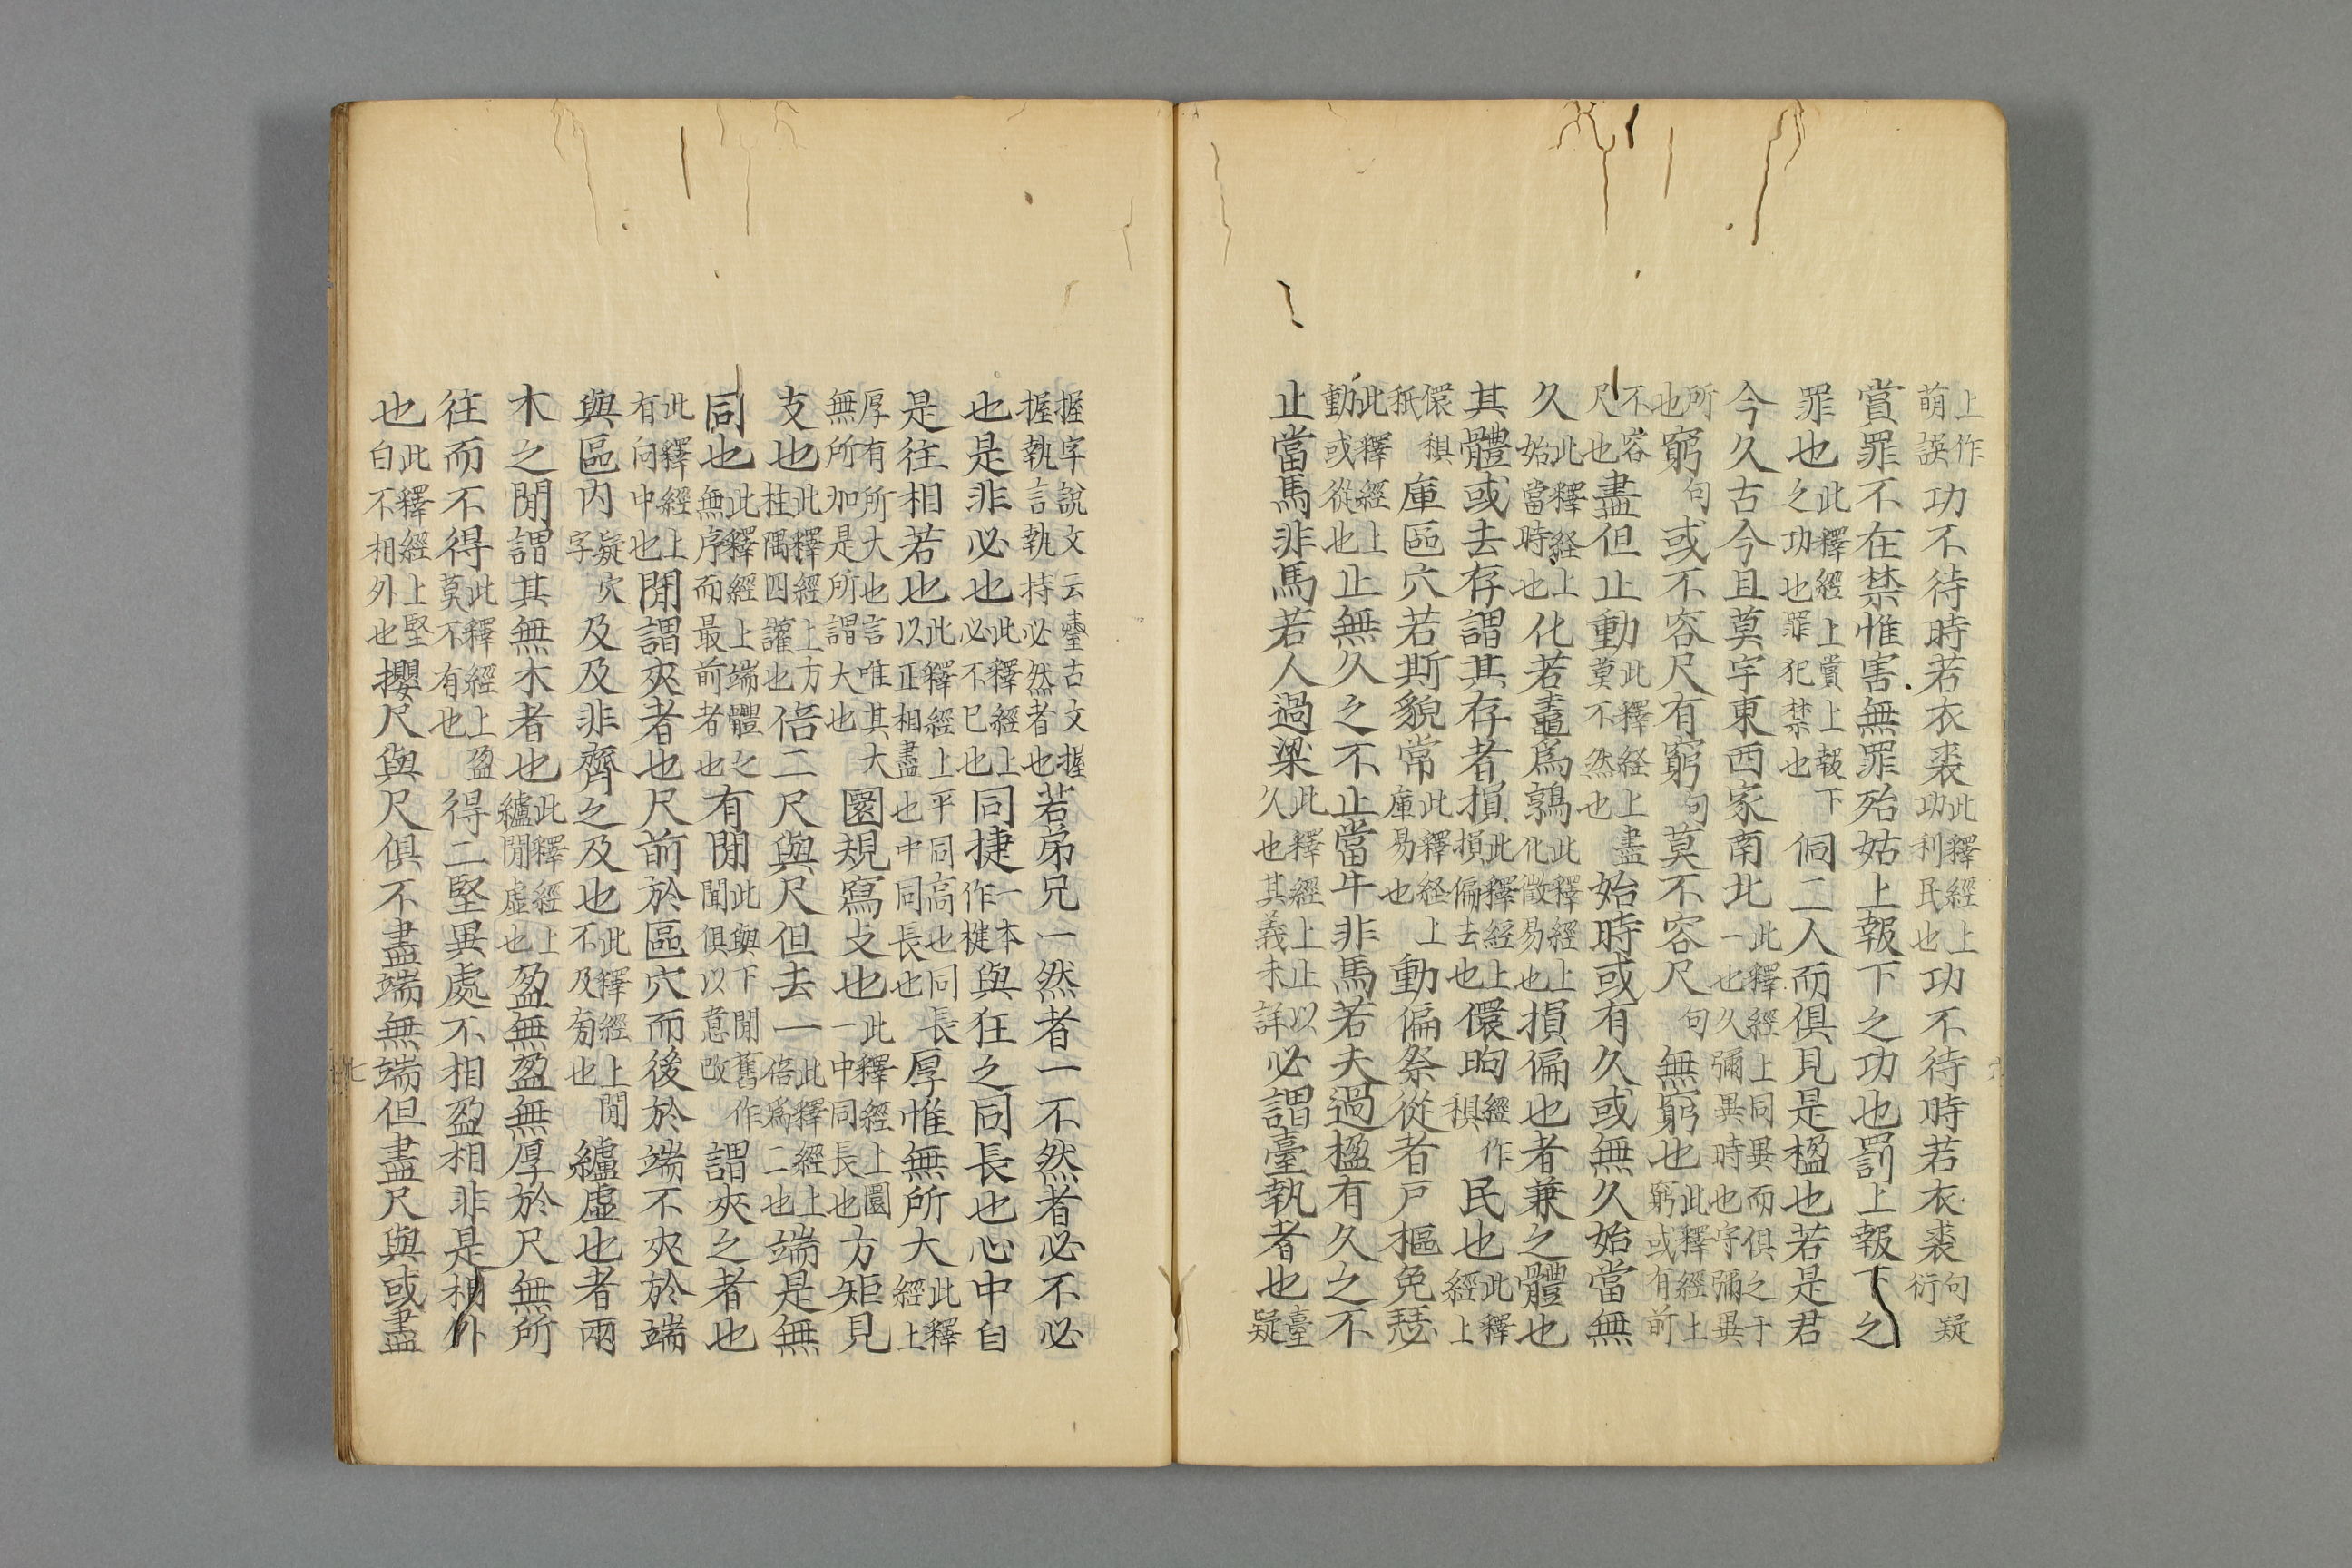 上作萌誤功不待時若衣裘此釋經上功利民也功不待時若衣裘句疑衍
賞罪不在禁惟害無罪殆姑上報下之功也罰上報下之
罪也此釋經上賞上報下之功也罪犯禁也侗二人而俱見是楹也若是君
今久古今且莫宇東西家南北此釋經上同異而俱之于一也久彌異時也宇彌異
所也窮句或不容尺有窮句莫不容尺句無窮也此釋經上窮或有前
不容尺也盡但止動此釋経上盡莫不然也始時或有久或無久始當無
久此釋経上始當時也化若鼃爲鶉此釋經上化徵易也損偏也者兼之體也
其體或去存謂其存者損此釋經上損偏去也儇昫經作䅵民也此釋經上
儇䅵秖庫區穴若斯貌常此釋経上庫易也動偏祭從者戸樞免瑟
此釋經上動或從也止無久之不止當牛非馬若夫過楹有久之不
止當馬非馬若人過梁此釋經上止以久也其義未詳必謂臺執者也臺疑
握字說文云臺古文握握執言執持必然者也若弟兄一然者一不然者必不必
也是非必也此釋經上必不已也同捷一本作楗與狂之同長也心中自
是往相若也此釋經上平同高也同長以正相盡也中同長也厚惟無所大此釋經上
厚有所大也言唯其大無所加是所謂大也圜規寫攴也此釋經上圜一中同長也方矩見
支也此釋經上方柱隅四讙也倍二尺與尺但去一此釋經上倍爲二也端是無
同也此釋經上端體之無序而最前者也有閒此與下閒舊作聞俱以意改謂夾之者也
此釋經上有間中也閒謂夾者也尺前於區穴而後於端不夾於端
與區内疑穴字及及非齊之及也此釋經上閒不及旁也纑虛也者兩
木之閒謂其無木者也此釋經上纑閒虛也盈無盈無厚於尺無所
往而不得此釋經上盈莫不有也得二堅異處不相盈相非是相外
也此釋經上堅白不相外也攖尺與尺俱不盡端無端但盡尺與或盡
七